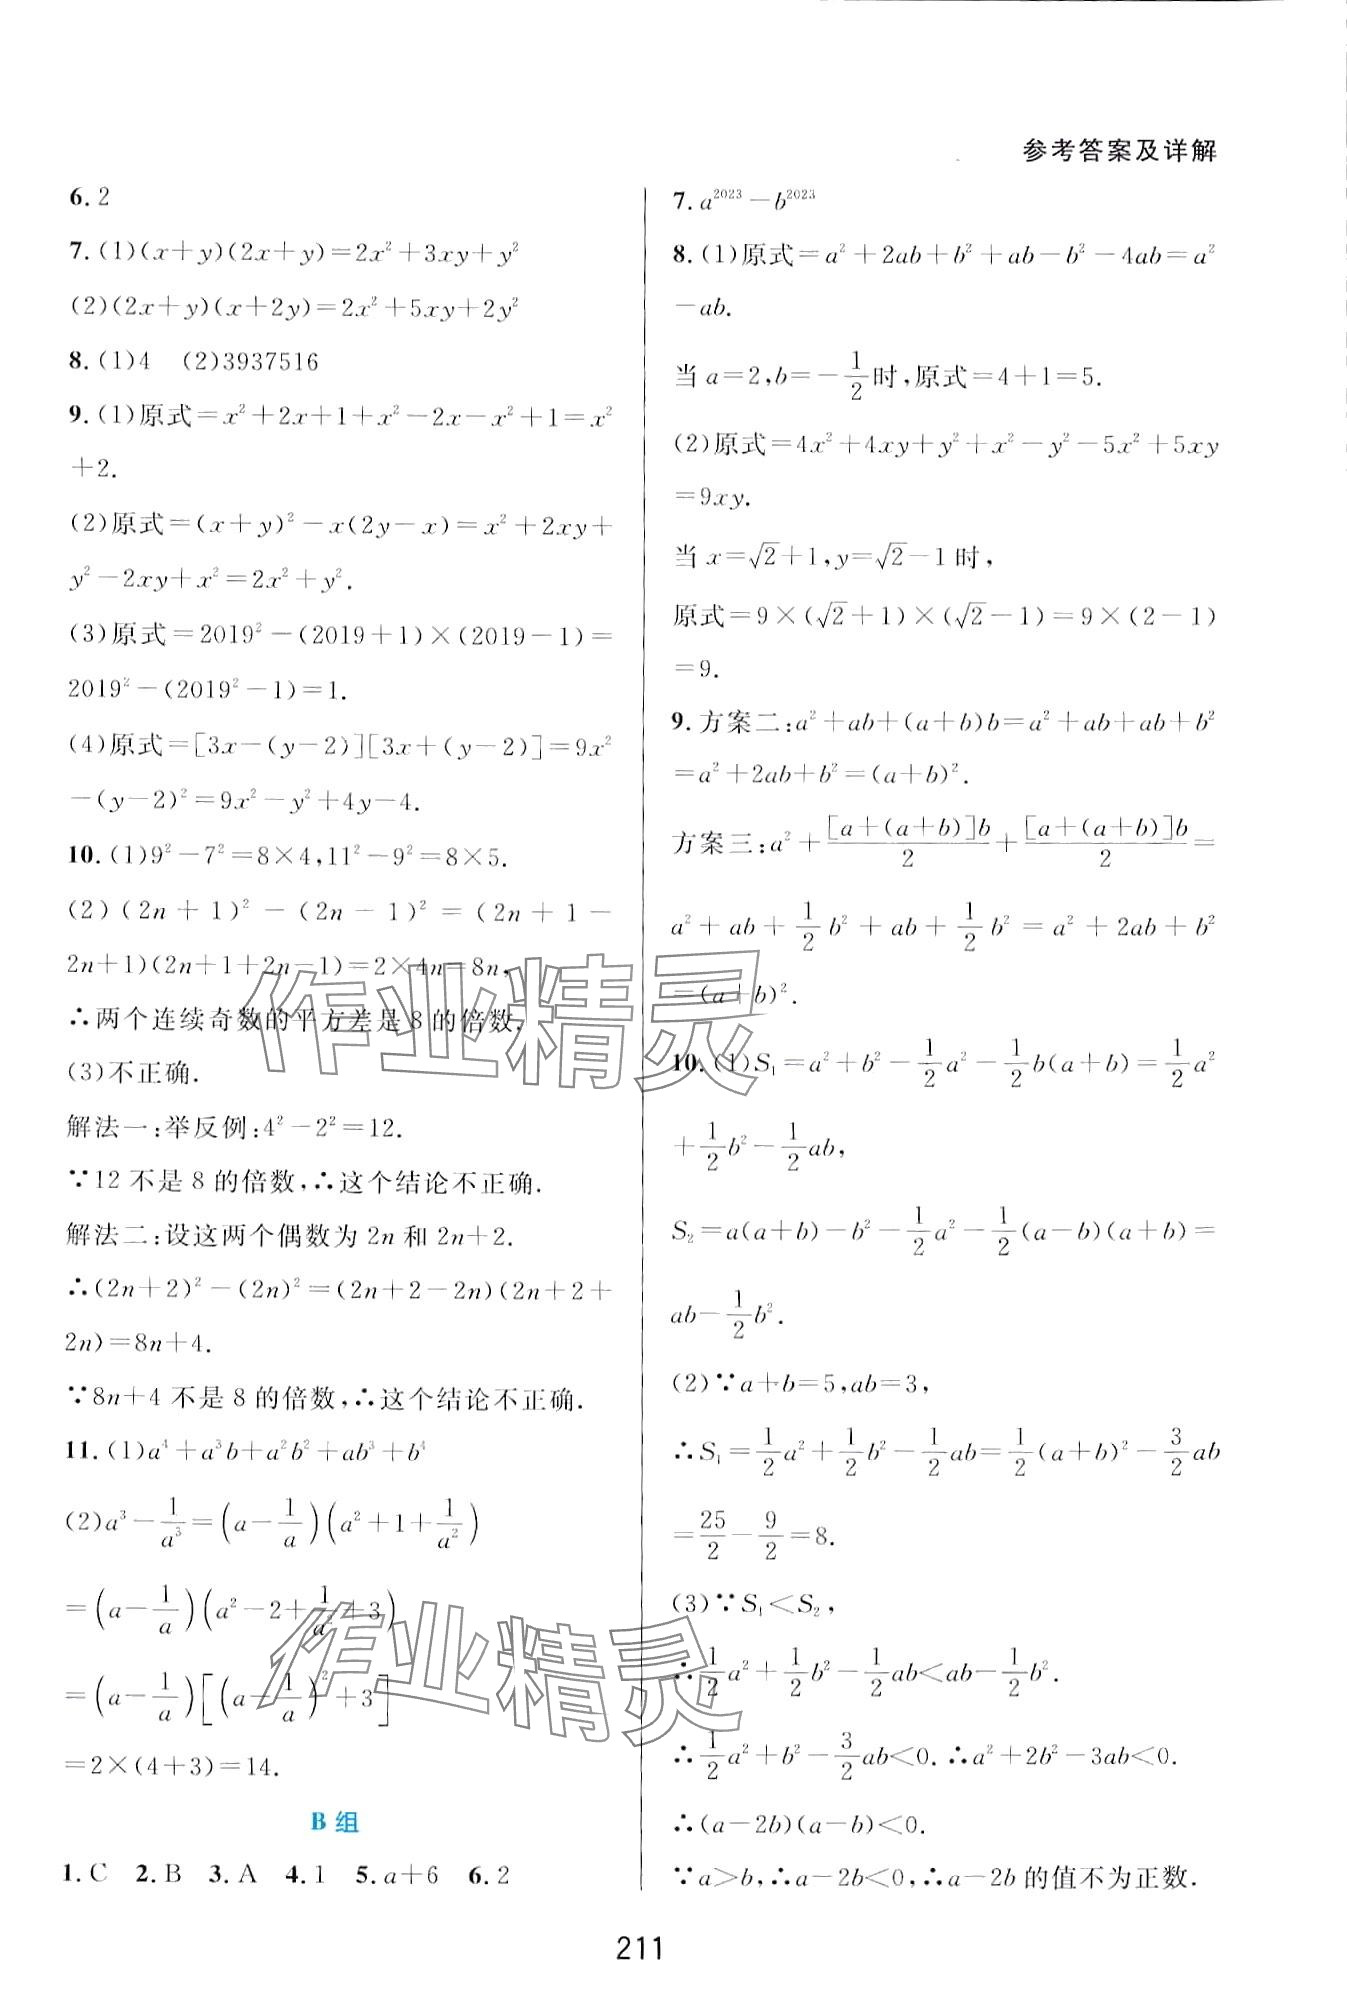 参考答案及详解
6. 2
7. (1)(x+y)(2x+y)=2x²+3xy+y²
(2)(2x+y)(x+2y)=2x²+5xy+2y²
8. (1)4 (2)3937516
9. (1)原式=x²+2x+1+x²-2x-x²+1=x²
+2.
(2)原式=(x+y)²-x(2y-x)=x²+2xy+
y²-2xy+x²=2x²+y².
(3)原式=2019²-(2019+1)×(2019-1)=
2019²-(2019²-1)=1.
(4)原式=[3x-(y-2)][3x+(y-2)]=9x²
-(y-2)²=9x²-y²+4y-4.
10. (1)9²-7²=8×4,11²-9²=8×5.
(2)(2n+1)²-(2n-1)²=(2n+1-
2n+1)(2n+1+2n-1)=2×4n=8n,
∴两个连续奇数的平方差是8的倍数.
(3)不正确.
解法一:举反例:4²-2²=12.
∵12不是8的倍数,∴这个结论不正确.
解法二:设这两个偶数为2n和2n+2.
∴(2n+2)²-(2n)²=(2n+2-2n)(2n+2+
2n)=8n+4.
∵8n+4不是8的倍数,∴这个结论不正确.
11. (1)a⁴+a³b+a²b²+ab³+b⁴
(2)a³-1/a³=(a-1/a)(a²+1+1/a²)
=(a-1/a)(a²-2+1/a²+3)
=(a-1/a)[(a-1/a)²+3]
=2×(4+3)=14.
B组
1. C 2. B 3. A 4. 1 5. a+6 6. 2
7. a²⁰²³-b²⁰²³
8. (1)原式=a²+2ab+b²+ab-b²-4ab=a²
-ab.
当a=2,b=-1/2时,原式=4+1=5.
(2)原式=4x²+4xy+y²+x²-y²-5x²+5xy
=9xy.
当x=√2+1,y=√2-1时,
原式=9×(√2+1)×(√2-1)=9×(2-1)
=9.
9. 方案二:a²+ab+(a+b)b=a²+ab+ab+b²
=a²+2ab+b²=(a+b)².
方案三:a²+[a+(a+b)]b/2+[a+(a+b)]b/2=
a²+ab+1/2b²+ab+1/2b²=a²+2ab+b²
=(a+b)².
10. (1)S₁=a²+b²-1/2a²-1/2b(a+b)=1/2a²
+1/2b²-1/2ab,
S₂=a(a+b)-b²-1/2a²-1/2(a-b)(a+b)=
ab-1/2b².
(2)∵a+b=5,ab=3,
∴S₁=1/2a²+1/2b²-1/2ab=1/2(a+b)²-3/2ab
=25/2-9/2=8.
(3)∵S₁<S₂,
∴1/2a²+1/2b²-1/2ab<ab-1/2b².
∴1/2a²+b²-3/2ab<0.∴a²+2b²-3ab<0.
∴(a-2b)(a-b)<0.
∵a>b,∴a-2b<0,∴a-2b的值不为正数.
211
作业精灵
作业精灵